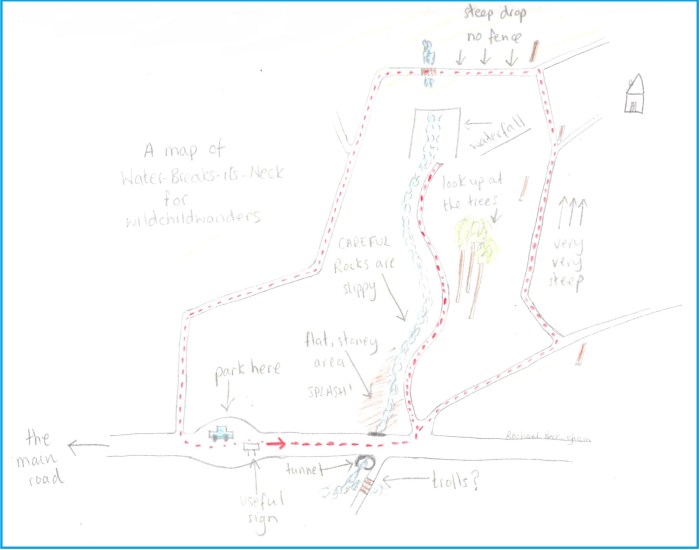 steep drop
no fence
A map of
Water-Breaks-its-Neck
for
wildchildwanders
waterfall
look up at
the trees
CAREFUL
Rocks are
slippy
very
very
steep
flat, stoney
area
SPLASH!
park here
the
main
road
tunnel
trolls?
useful
sign